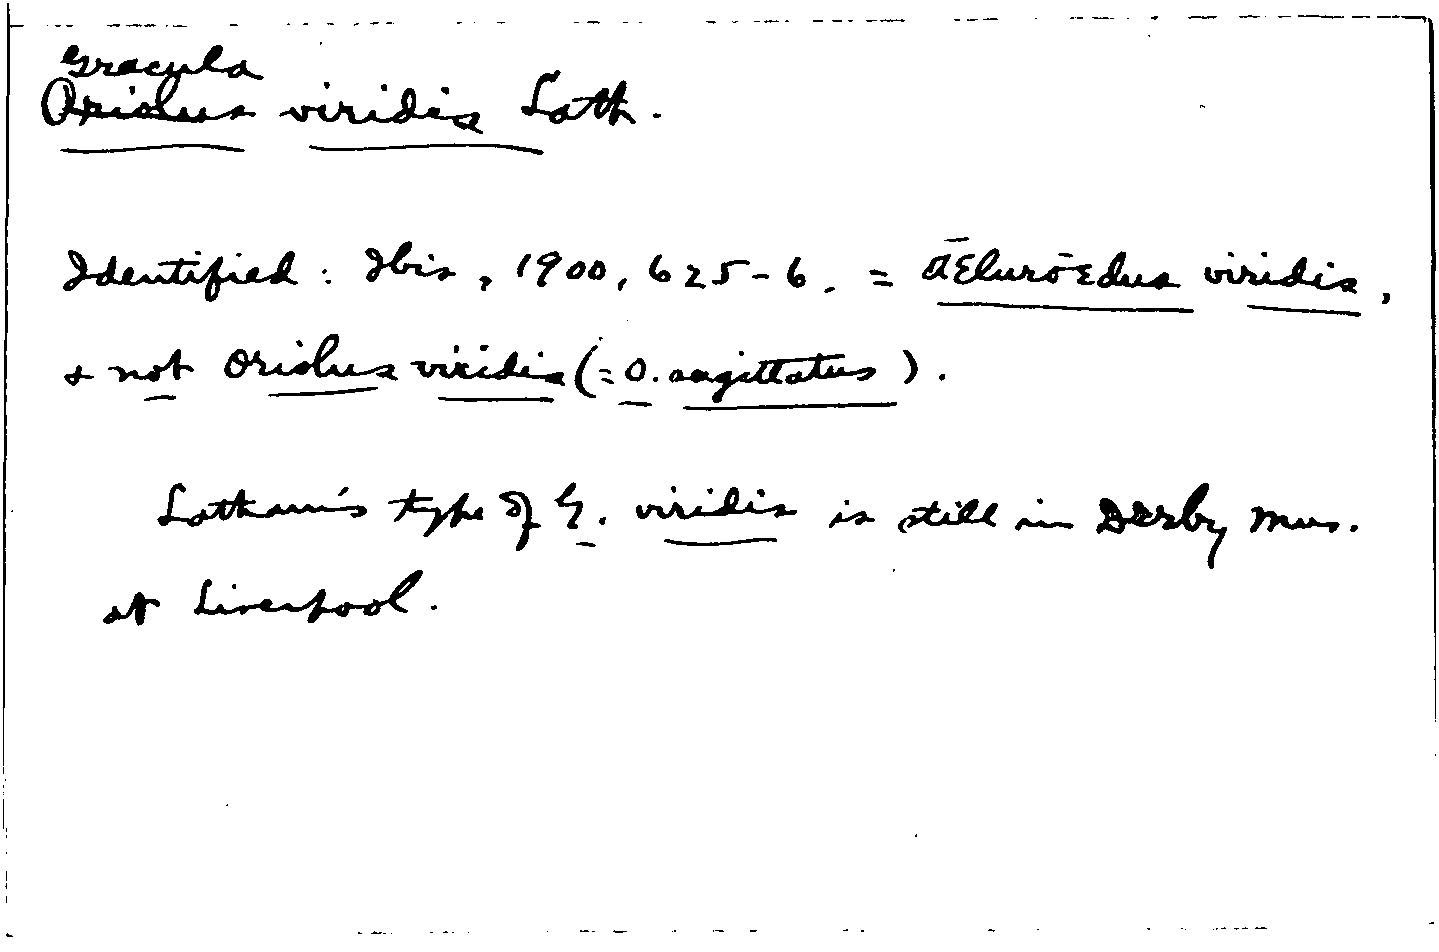 Gracula
Oriolus viridis Lath.
Identified: Ibis, 1900, 625-6. = Aēlurōedus viridis,
& not Oriolus viridis (= O. sagittatus).
Latham's type of G. viridis is still in Derby Mus.
at Liverpool.